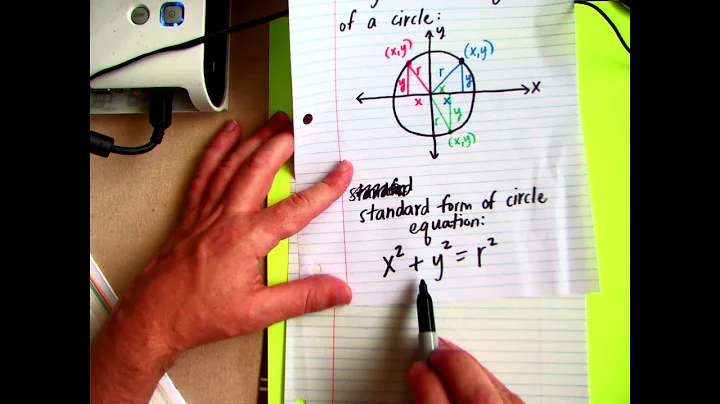 of a circle:
y
(x,y) (x,y)
r r
y y
x x x
r y
(x,y)
standard
standard form of circle
equation:
x² + y² = r²